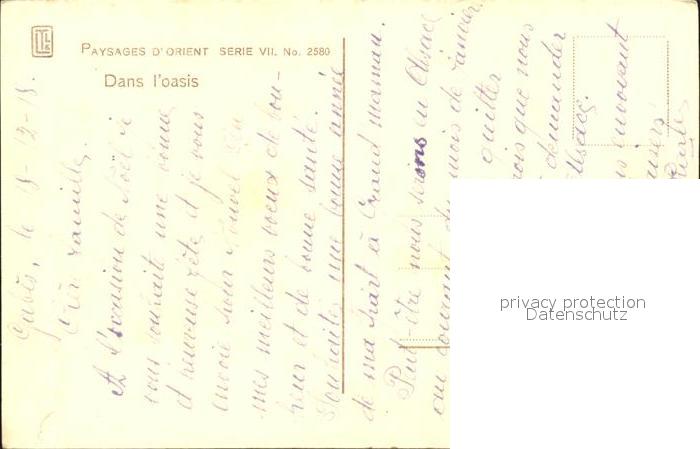 PAYSAGES D'ORIENT SERIE VII. No. 2580
Dans l'oasis
Gabès, le 18-12-18.
Chère famille,
A l'occasion de Noël je
vous souhaite une bonne
et heureuse fête et je vous
envoie pour Nouvel An
mes meilleurs voeux de bon-
heur et de bonne santé.
Souhaitez une bonne année
de ma part à Grand maman.
Peut-être nous serons en Alsace
au courant du mois de janvier.
quitter
crois que nous
demander
Alsace.
envoyant
privacy protection
Datenschutz